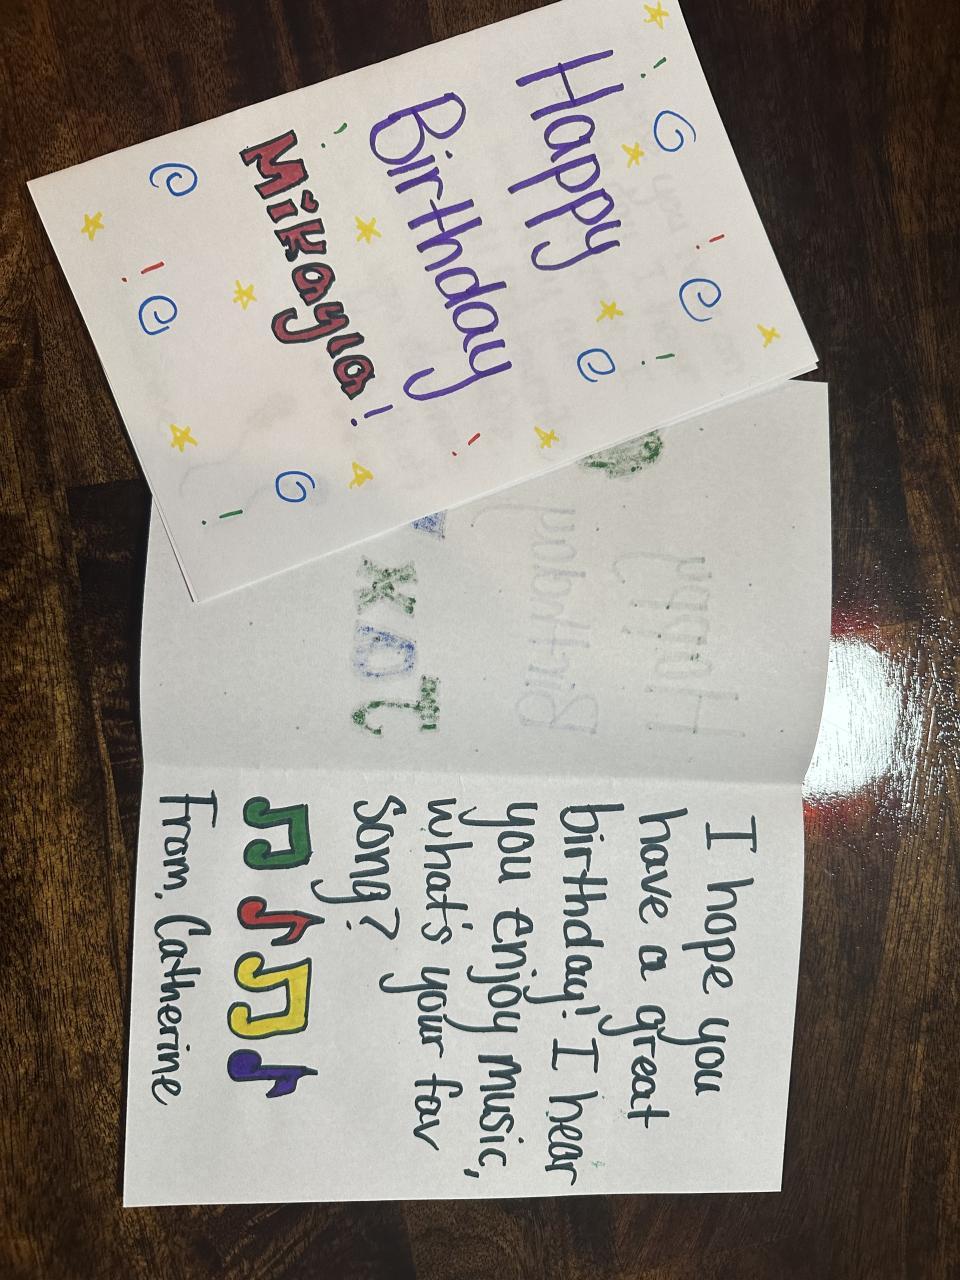 Happy
Birthday
Mikayla!
I hope you
have a great
birthday! I hear
you enjoy music,
what's your fav
song?
From, Catherine
Happy
Birthday